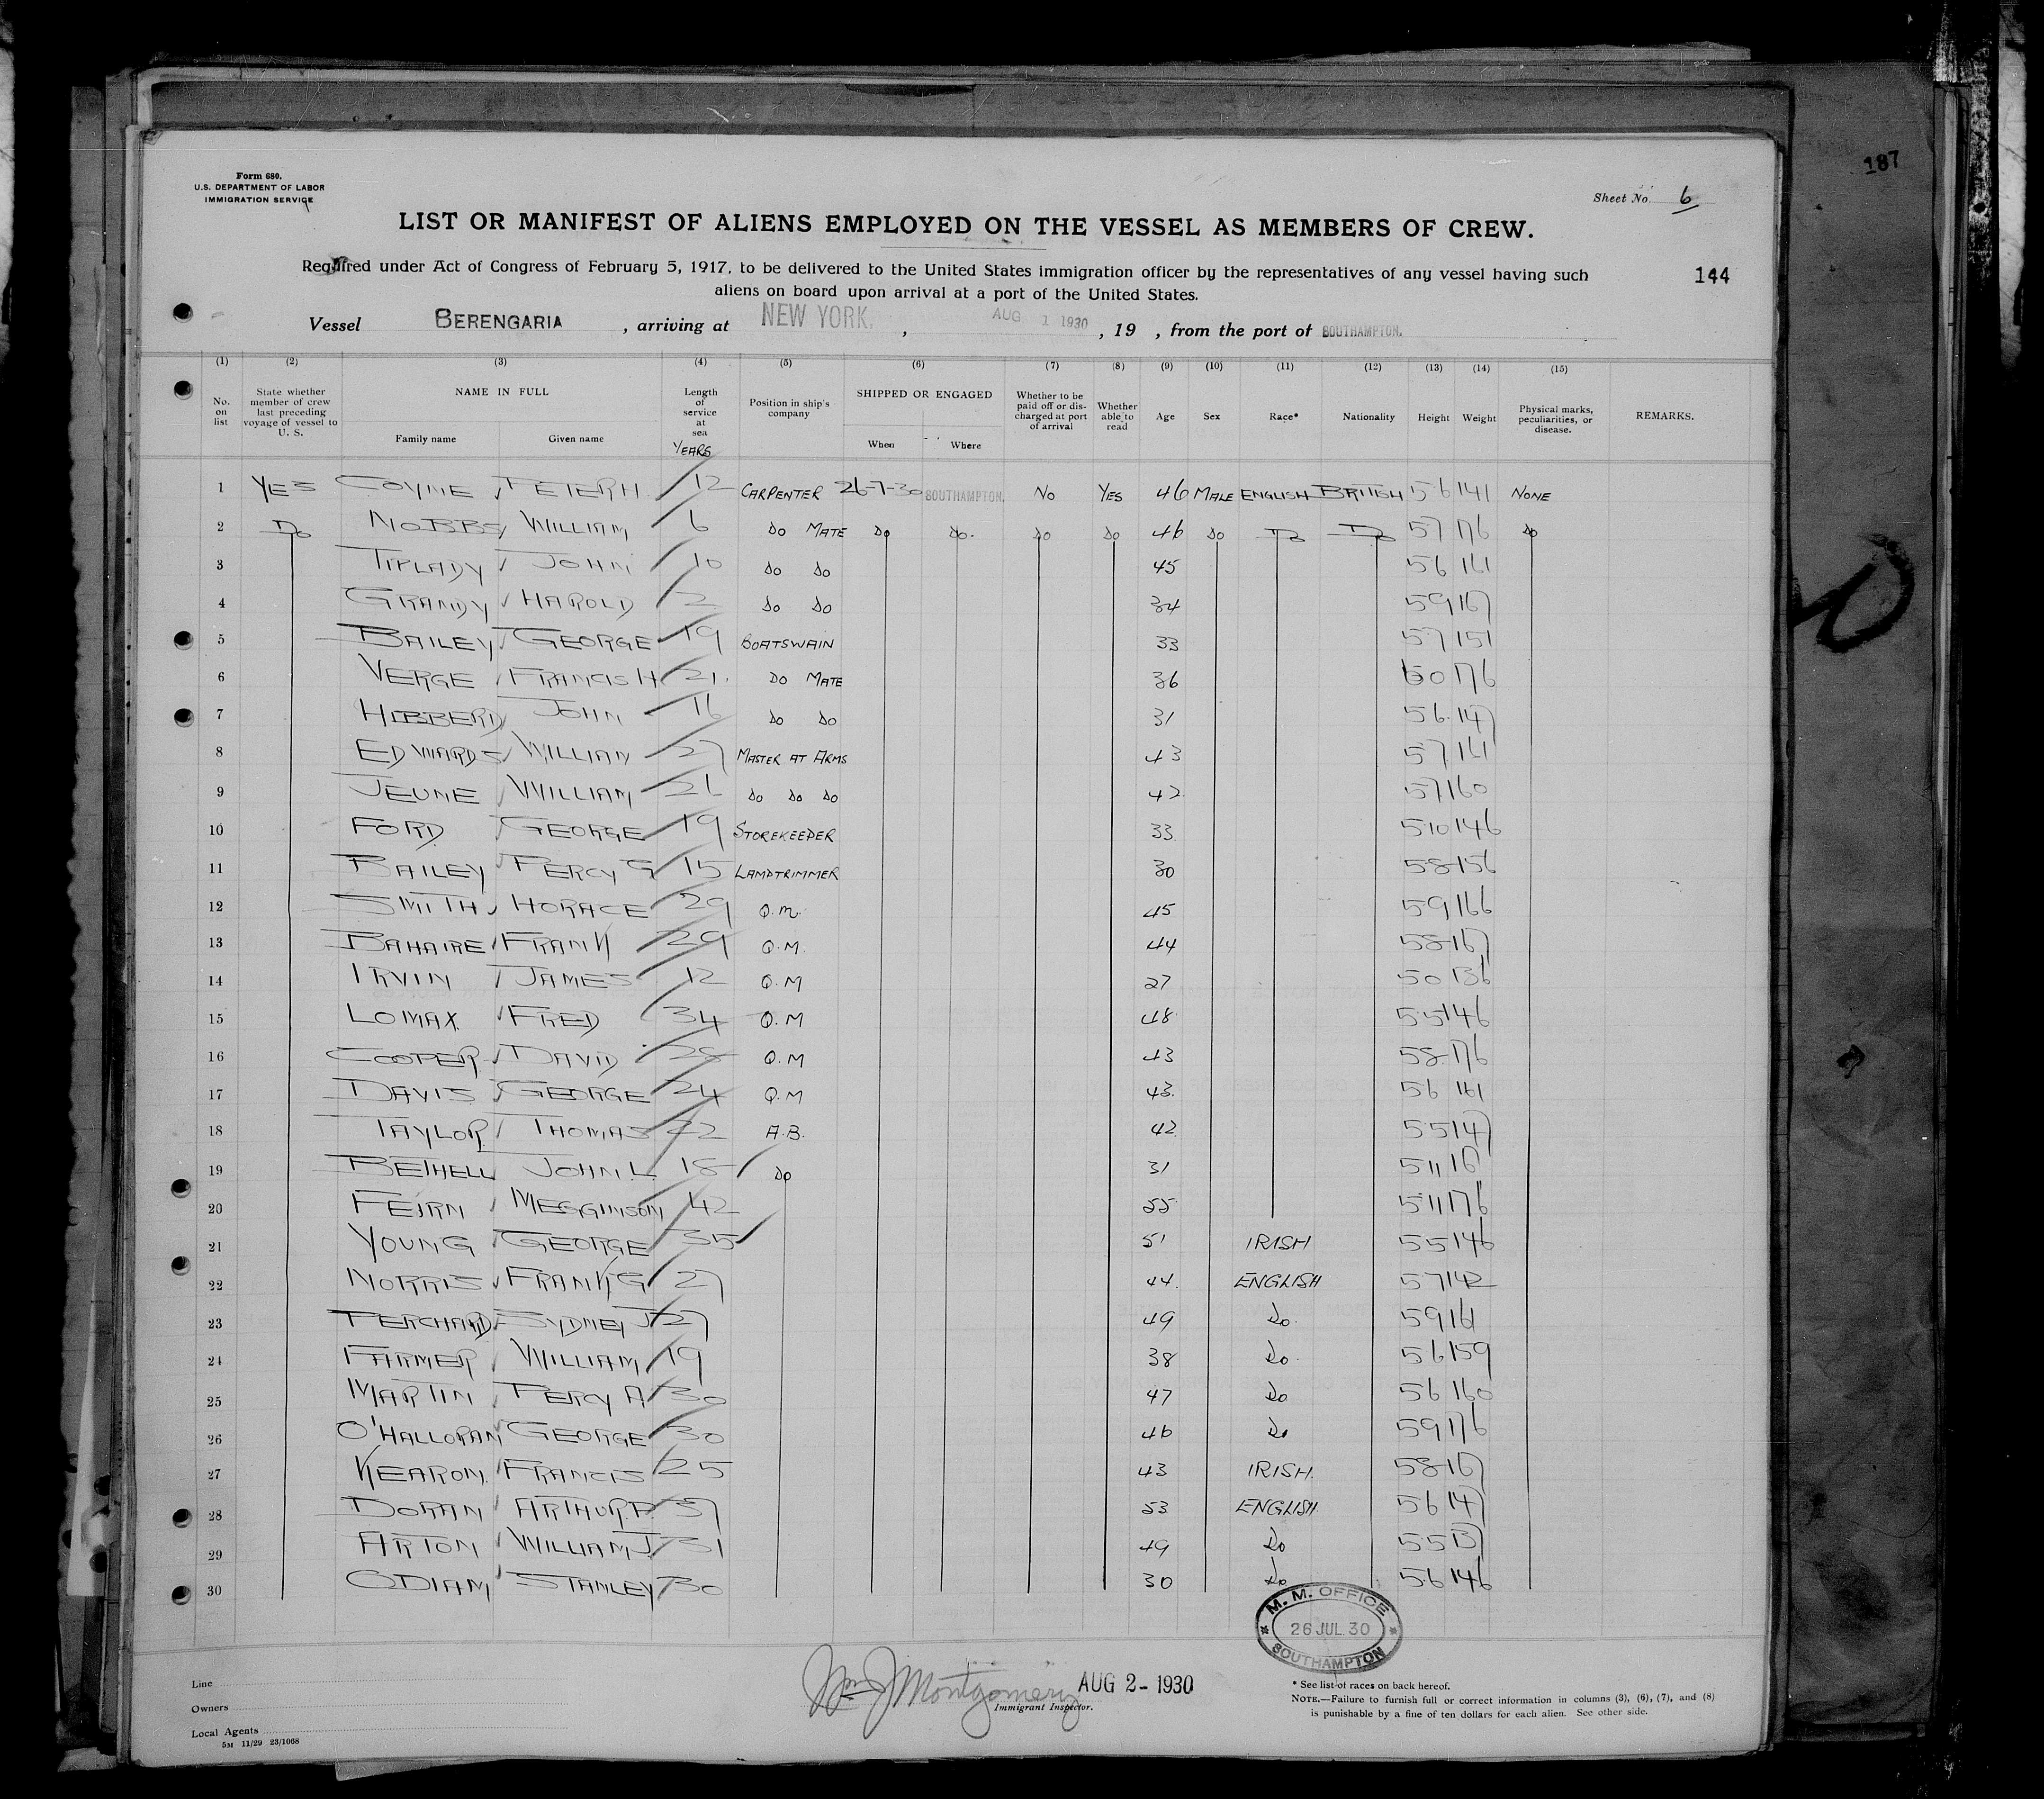 187
Form 680.
U.S. DEPARTMENT OF LABOR
IMMIGRATION SERVICE
Sheet No. 6
LIST OR MANIFEST OF ALIENS EMPLOYED ON THE VESSEL AS MEMBERS OF CREW.
Required under Act of Congress of February 5, 1917, to be delivered to the United States immigration officer by the representatives of any vessel having such
aliens on board upon arrival at a port of the United States.
144
Vessel BERENGARIA, arriving at NEW YORK, AUG 1 1930, 19 , from the port of SOUTHAMPTON.
(1) (2) (3) (4) (5) (6) (7) (8) (9) (10) (11) (12) (13) (14) (15)
No. on list State whether member of crew last preceding voyage of vessel to U. S. NAME IN FULL Family name Given name Length of service at sea YEARS Position in ship's company SHIPPED OR ENGAGED When Where Whether to be paid off or discharged at port of arrival Whether able to read Age Sex Race* Nationality Height Weight Physical marks, peculiarities, or disease. REMARKS.
1 YES COYNE PETER H. 12 CARPENTER 26-7-30 SOUTHAMPTON. NO YES 46 MALE ENGLISH BRITISH 5 6 141 NONE
2 Do NOBBS WILLIAM 6 Do MATE Do Do. Do Do 46 Do Do Do 5 7 176 Do
3 TIPLADY JOHN 10 Do Do 45 5 6 161
4 GRANDY HAROLD 2 Do Do 34 5 9 167
5 BAILEY GEORGE 19 BOATSWAIN 33 5 7 151
6 VERGE FRANCIS H 21 Do MATE 36 6 0 176
7 HIBBERD JOHN 16 Do Do 31 5 6 147
8 EDWARDS WILLIAM 27 MASTER AT ARMS 43 5 7 161
9 JEUNE WILLIAM 26 Do Do Do 42 5 7 160
10 FORD GEORGE 19 STOREKEEPER 33 5 10 146
11 BAILEY PERCY G 15 LAMPTRIMMER 30 5 8 156
12 SMITH HORACE 29 Q.M. 45 5 9 166
13 BAHAIRE FRANK 29 Q.M. 44 5 8 167
14 IRVIN JAMES 12 Q.M 27 5 0 136
15 LOMAX FRED 34 Q.M 48 5 5 146
16 COOPER DAVID 28 Q.M 43 5 8 176
17 DAVIS GEORGE 24 Q.M 43. 5 6 161
18 TAYLOR THOMAS 22 A.B. 42 5 5 147
19 BETHELL JOHN L 18 Do 31 5 11
20 FEIRN MEGGINSON 42 55 5 11 176
21 YOUNG GEORGE 35 51 IRISH 5 5 146
22 NORRIS FRANK G 27 44 ENGLISH 5 7 142
23 PERCHARD SYDNEY J 27 49 Do. 5 9 161
24 FARMER WILLIAM 19 38 Do. 5 6 159
25 MARTIN PERCY A 30 47 Do 5 6 160
26 O'HALLORAN GEORGE 30 46 Do 5 9 176
27 KEARON FRANCIS 25 43 IRISH. 5 8 167
28 DORAN ARTHUR P. 37 53 ENGLISH. 5 6 147
29 ARTON WILLIAM J. 31 49 Do 5 5 137
30 ODIAM STANLEY 30 30 Do 5 6 146
M. M. OFFICE
26 JUL 30
SOUTHAMPTON
Line
Owners
Local Agents
5M 11/29 23/1068
Wm J Montgomery AUG 2 - 1930
Immigrant Inspector.
* See list of races on back hereof.
NOTE.—Failure to furnish full or correct information in columns (3), (6), (7), and (8)
is punishable by a fine of ten dollars for each alien. See other side.